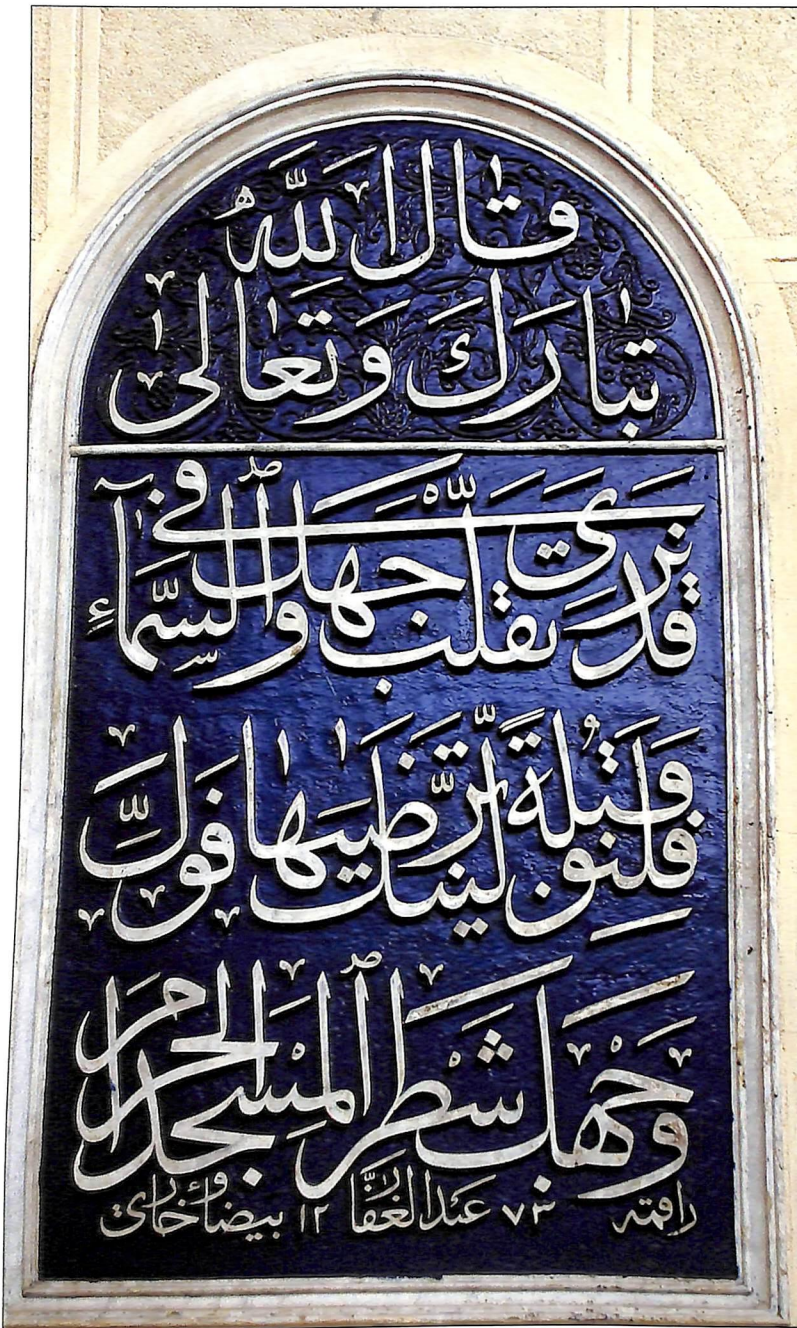 قَالَ اللّٰهُ
تَبَارَكَ وَتَعَالٰى
قَدْ نَرٰى تَقَلُّبَ وَجْهِكَ فِى السَّمَآءِ
فَلَنُوَلِّيَنَّكَ قِبْلَةً تَرْضٰيهَا فَوَلِّ
وَجْهَكَ شَطْرَ الْمَسْجِدِ الْحَرَامِ
راقمه عبد الغفار بيضاوئ خاری ١٢٧٣